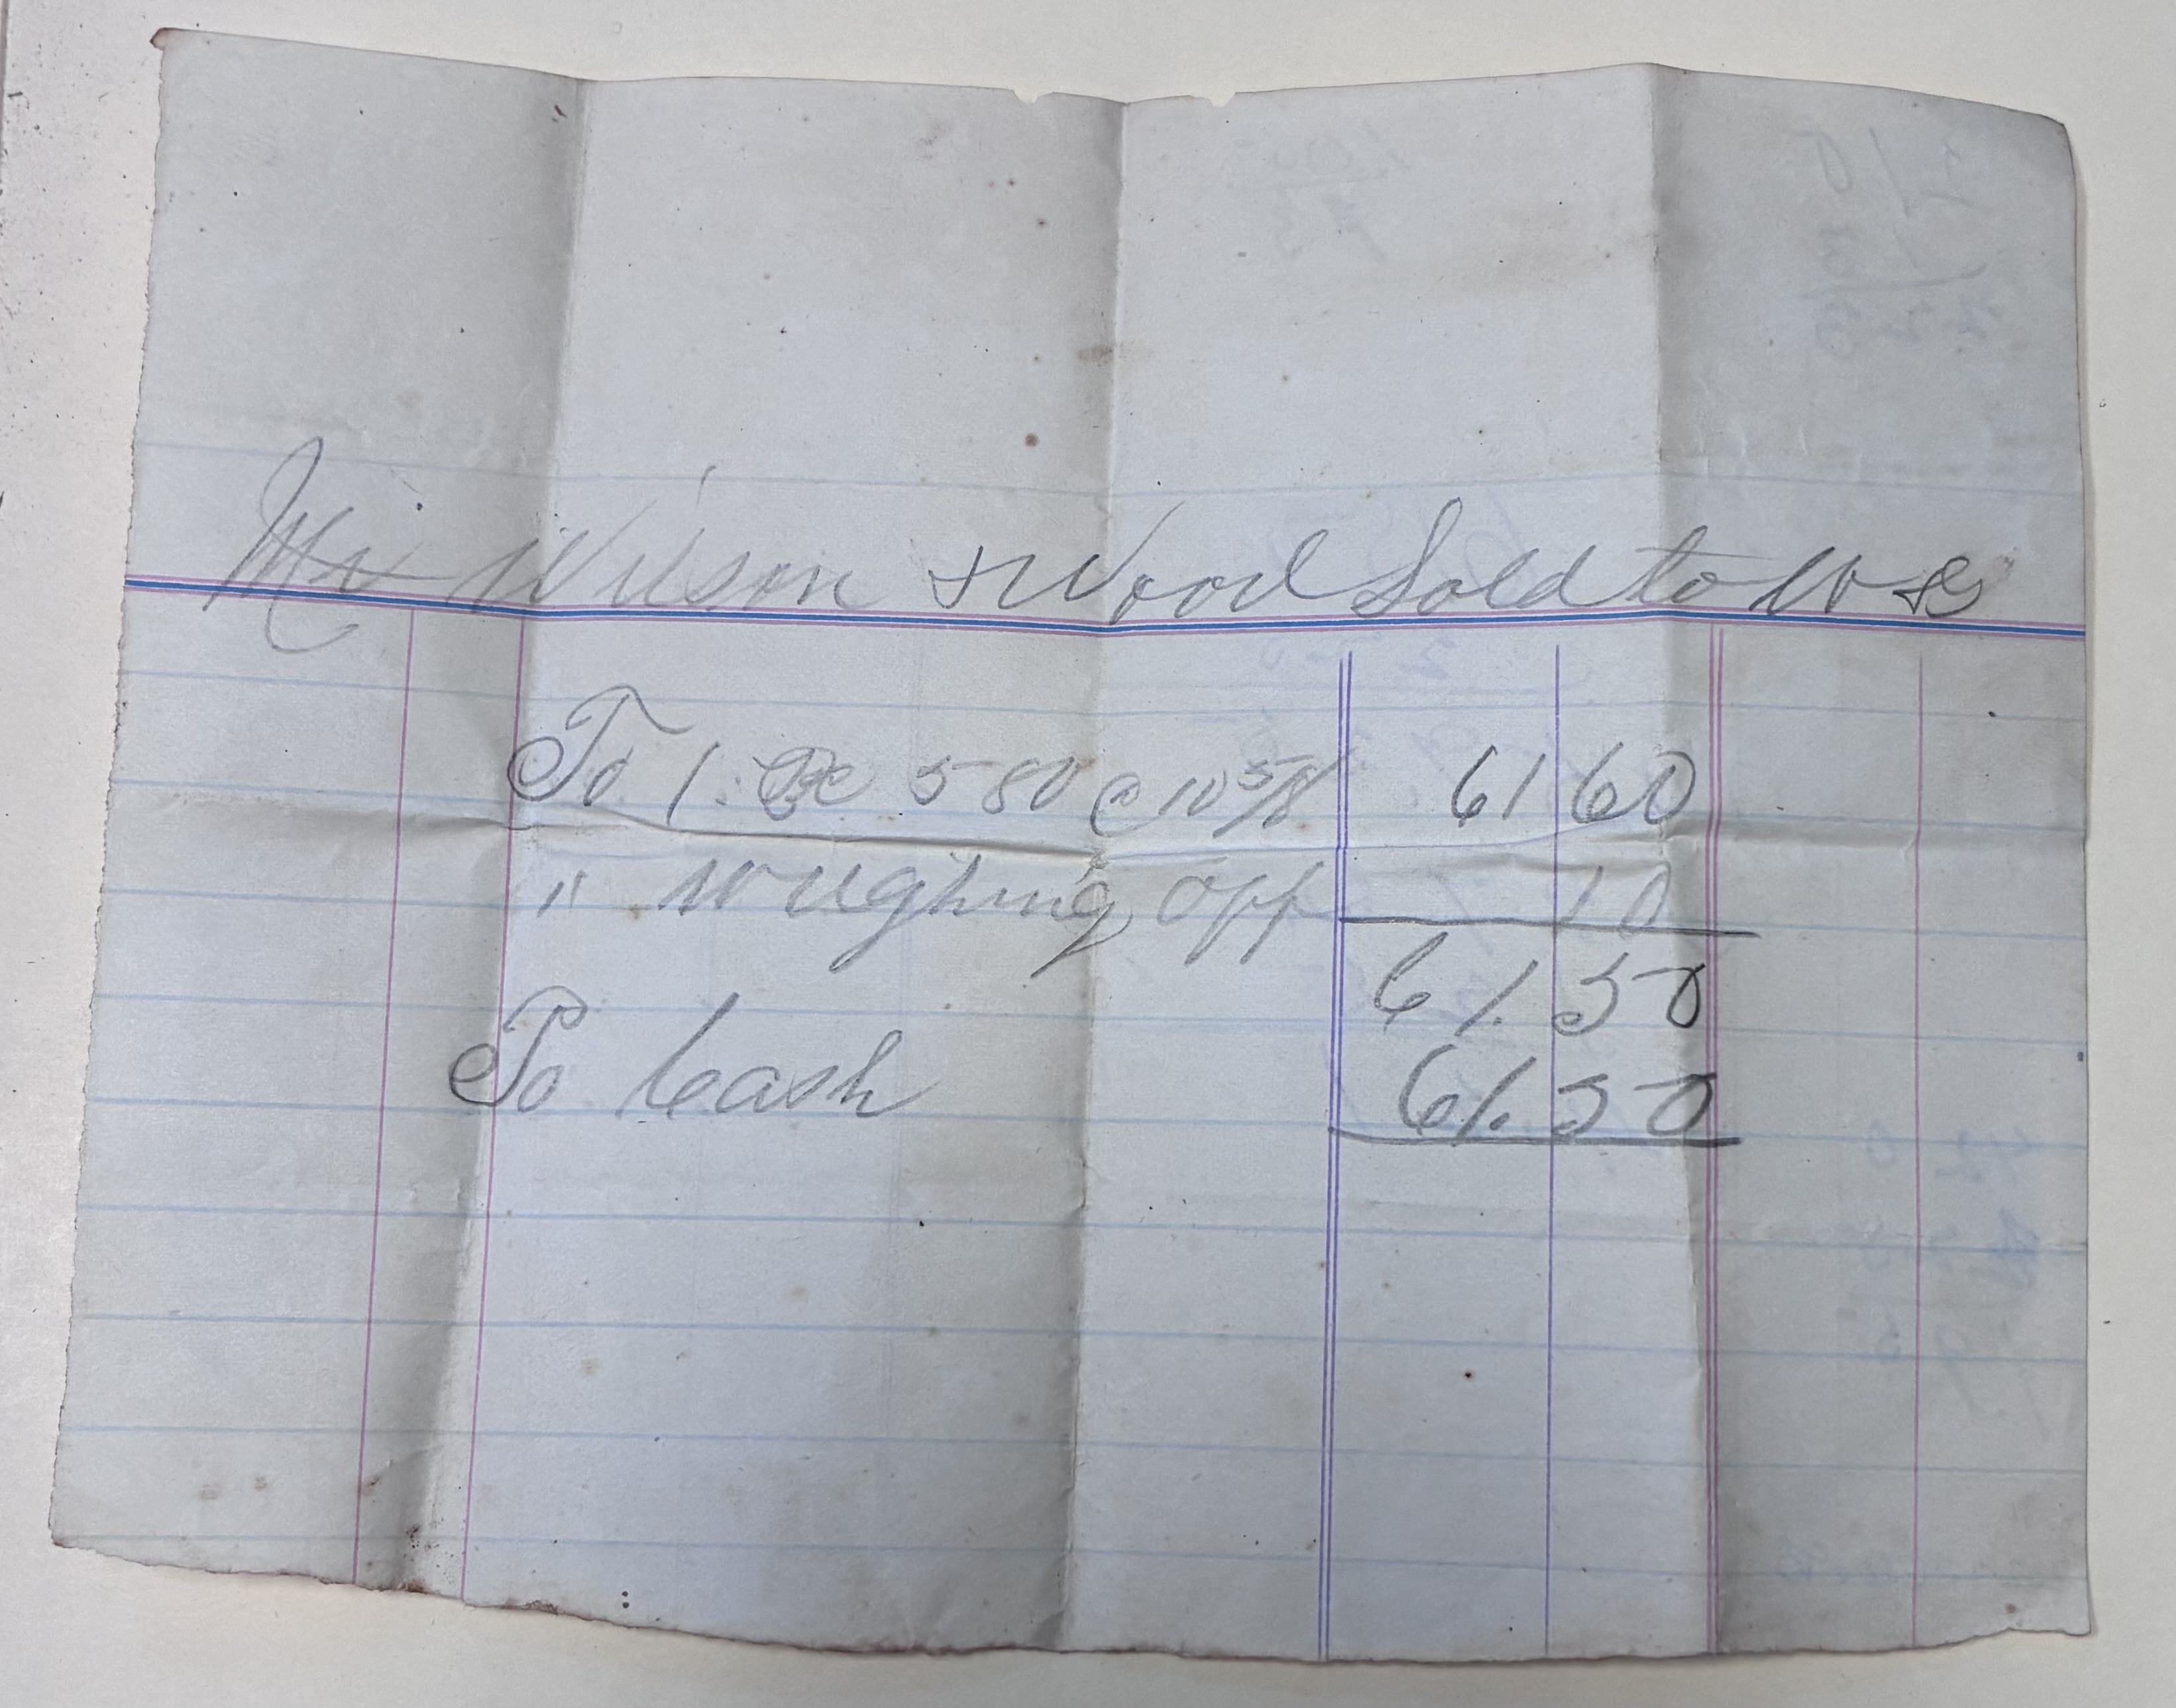 Mr Wilson & Wood Sold to W &
To 1. Bc 580 @ 10 5/8 61 60
" Weighing Off 10
61.50
To Cash 61.50